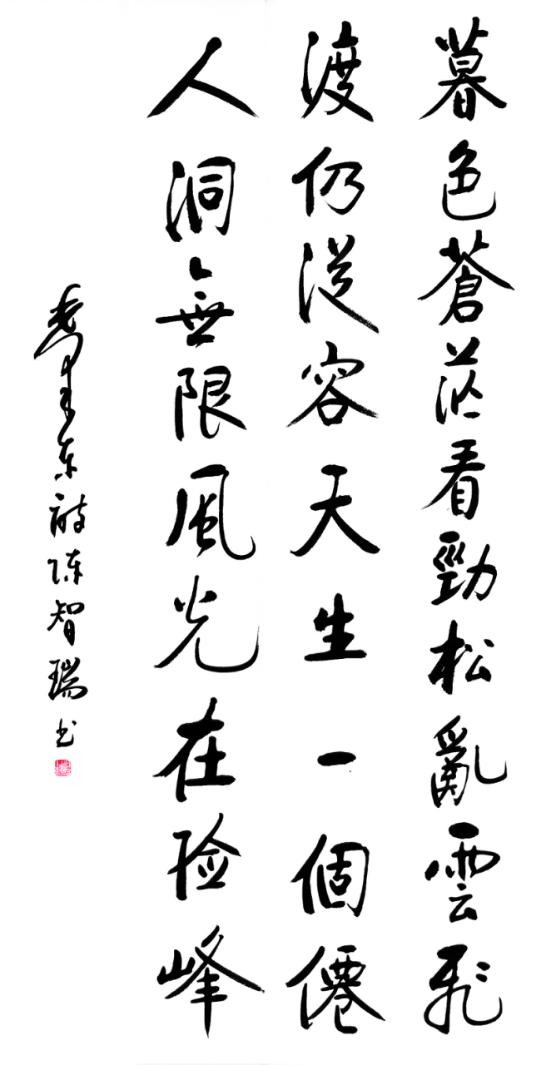 暮色蒼茫看勁松亂雲飛
渡仍從容天生一個僊
人洞無限風光在险峰
毛澤东詩陈智瑞书